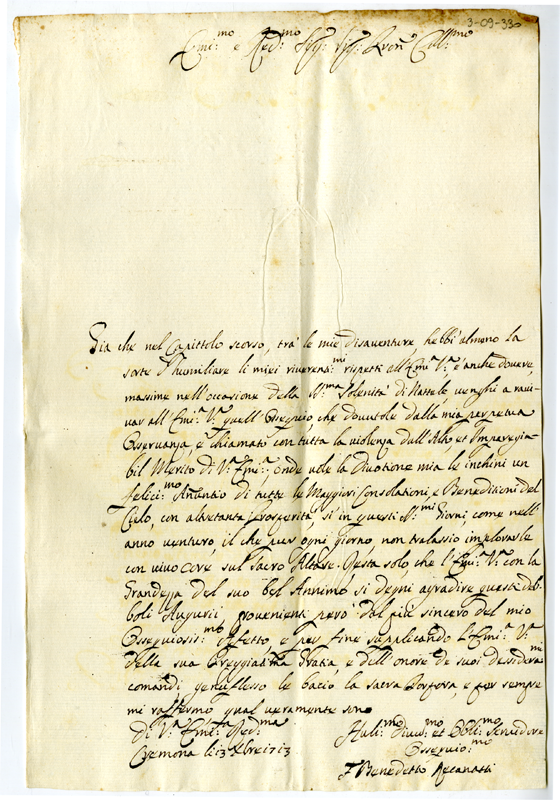 3-09-330
Em.mo e Red.mo Sig.r Sig.r Pron.e Coll.mo
Gia che nel Capittolo scorso, trà le mie disaventure hebbi almeno la
sorte d'humiliare li miei riverens.mi rispetti all'Em.a V.a è anche dovere,
massime nell'occasione della S.ma Solenità di Nattale venghi a ravi-
var all'Em.a V.a quell'Ossequio, che dovutole dalla mia perpetua
Osservanza, è chiamato con tutta la violenza dall'Alto, et Impare gia-
bil Merito di V.a Em.a, onde vole la Divotione mia le inchini un
felici.mo Anuntio di tutte le Maggiori Consolationi, e Beneditioni del
Cielo, con altretanta prosperità, sì in questi S.mi Giorni, come nell'
anno venturo, il che per ogni giorno non tralassio implorarle
con vivo Core sul sacro Altare. Resta solo, che l'Em.a V.a con la
Grandezza del suo bel Annimo si degni agradire questi deb-
boli Augurii provenienti però dal più sincero del mio
Ossequiosis.mo Affetto, e per fine supplicando l'Em.a V.a
della sua Preggiatis.ma Gratia, e dell'onore de suoi dessidera.mi
comandi, genuflesso le bacio la sacra Porpora, e per sempre
mi raffermo qual veramente sono
Di V.a Em.za Red.ma
Humi.mo Divo.mo et Obli.mo Servidore
Cremona li 13 Xbre 1713
Ossequio.mo
F Benedetto Recanatti